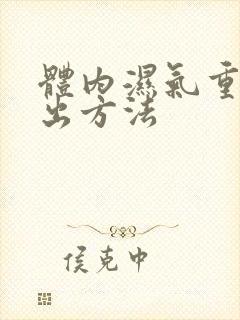 體內濕氣重
出方法
侯克中